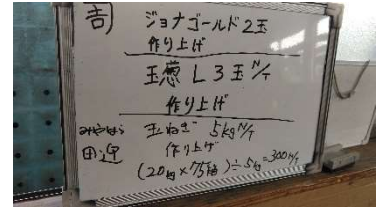 吉 ジョナゴールド2玉
作り上げ
玉葱 L 3玉 N/T
作り上げ
玉ねぎ 5kg N/T
田迎 作り上げ
(20kg × 75箱) ÷ 5kg = 300 N/T